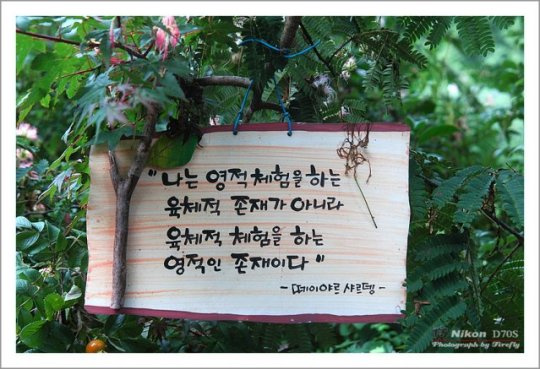 "나는 영적 체험을 하는
육체적 존재가 아니라
육체적 체험을 하는
영적인 존재이다"
- 떼이야르 샤르뎅 -
Nikon D70S
Photograph by Firefly